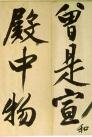 曾是宣和
殿中物